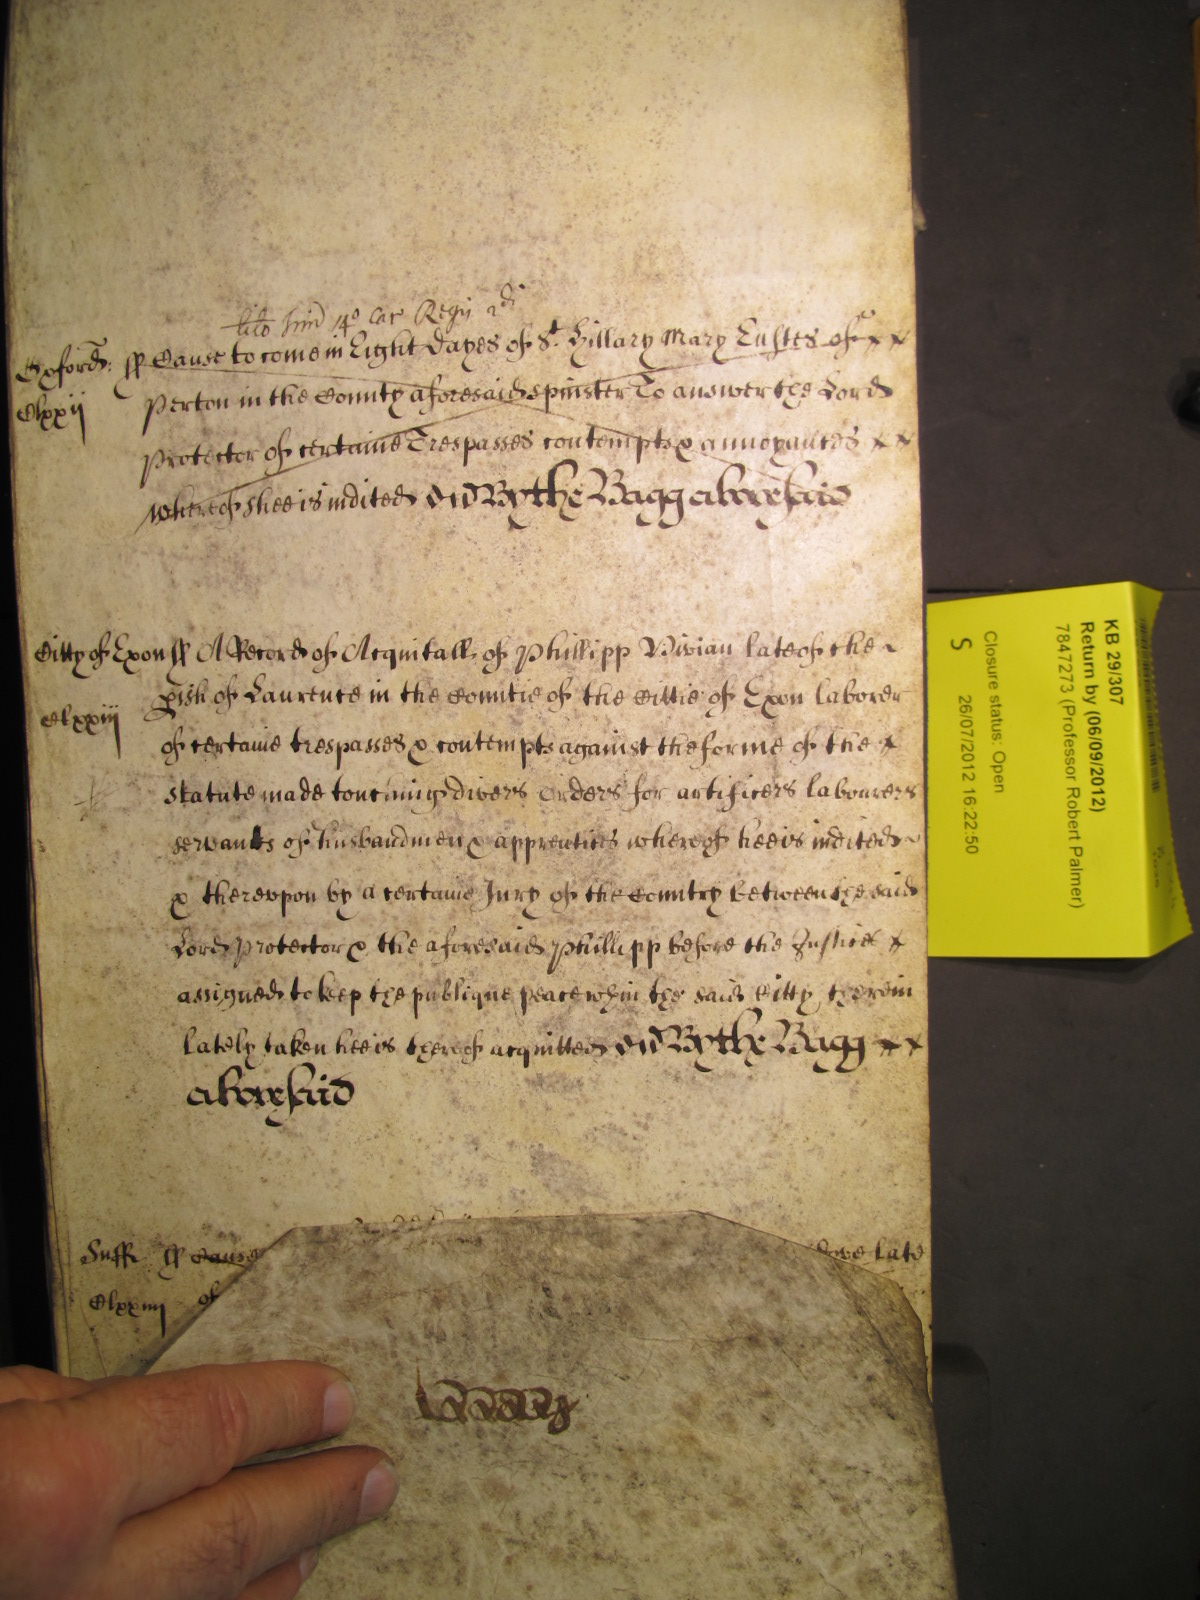 Trin 14° Car Regis 2di
Oxford: ss Cause to come in Eight dayes of St. Hillary Mary Eustes of
Clxxij
Perton in the County aforesaid spinster To answer the Lord
Protector of certaine Trespasses contempts & annoyances
whereof shee is indited By the Bagg abovesaid
Citty of Exon ss A Record of Acquitall of Phillipp Vivian late of the
pish of Laurence in the Countie of the Cittie of Exon laborer
Clxxiij
of certaine trespasses & contempts against the forme of the
statute made touching divers orders for artificers labourers
servants of husbandmen & apprentices whereof hee is indited
& therevpon by a certaine Jury of the Country betweene the said
Lord Protector & the aforesaid Phillipp before the Justices
assigned to keep the publique peace wthin the said Citty therein
lately taken hee is thereof acquitted By the Bagg
abovesaid
Suff ss Cause late
Clxxiiij of
KB 29/307
Return by (06/09/2012)
7847273 (Professor Robert Palmer)
Closure status: Open
S 26/07/2012 16:22:50